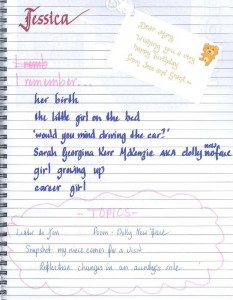 Jessica
Dear Abby
Wishing you a very
happy birthday
I remember...
her birth
the little girl on the bed
'would you mind driving the car?'
Sarah Georgina Kerr McKenzie AKA dolly
noface
girl growing up
career girl
- TOPICS -
Letter to Poem - Dolly Nose Face
Snapshot: my niece comes for a visit
Reflection: changes in an aunty's role